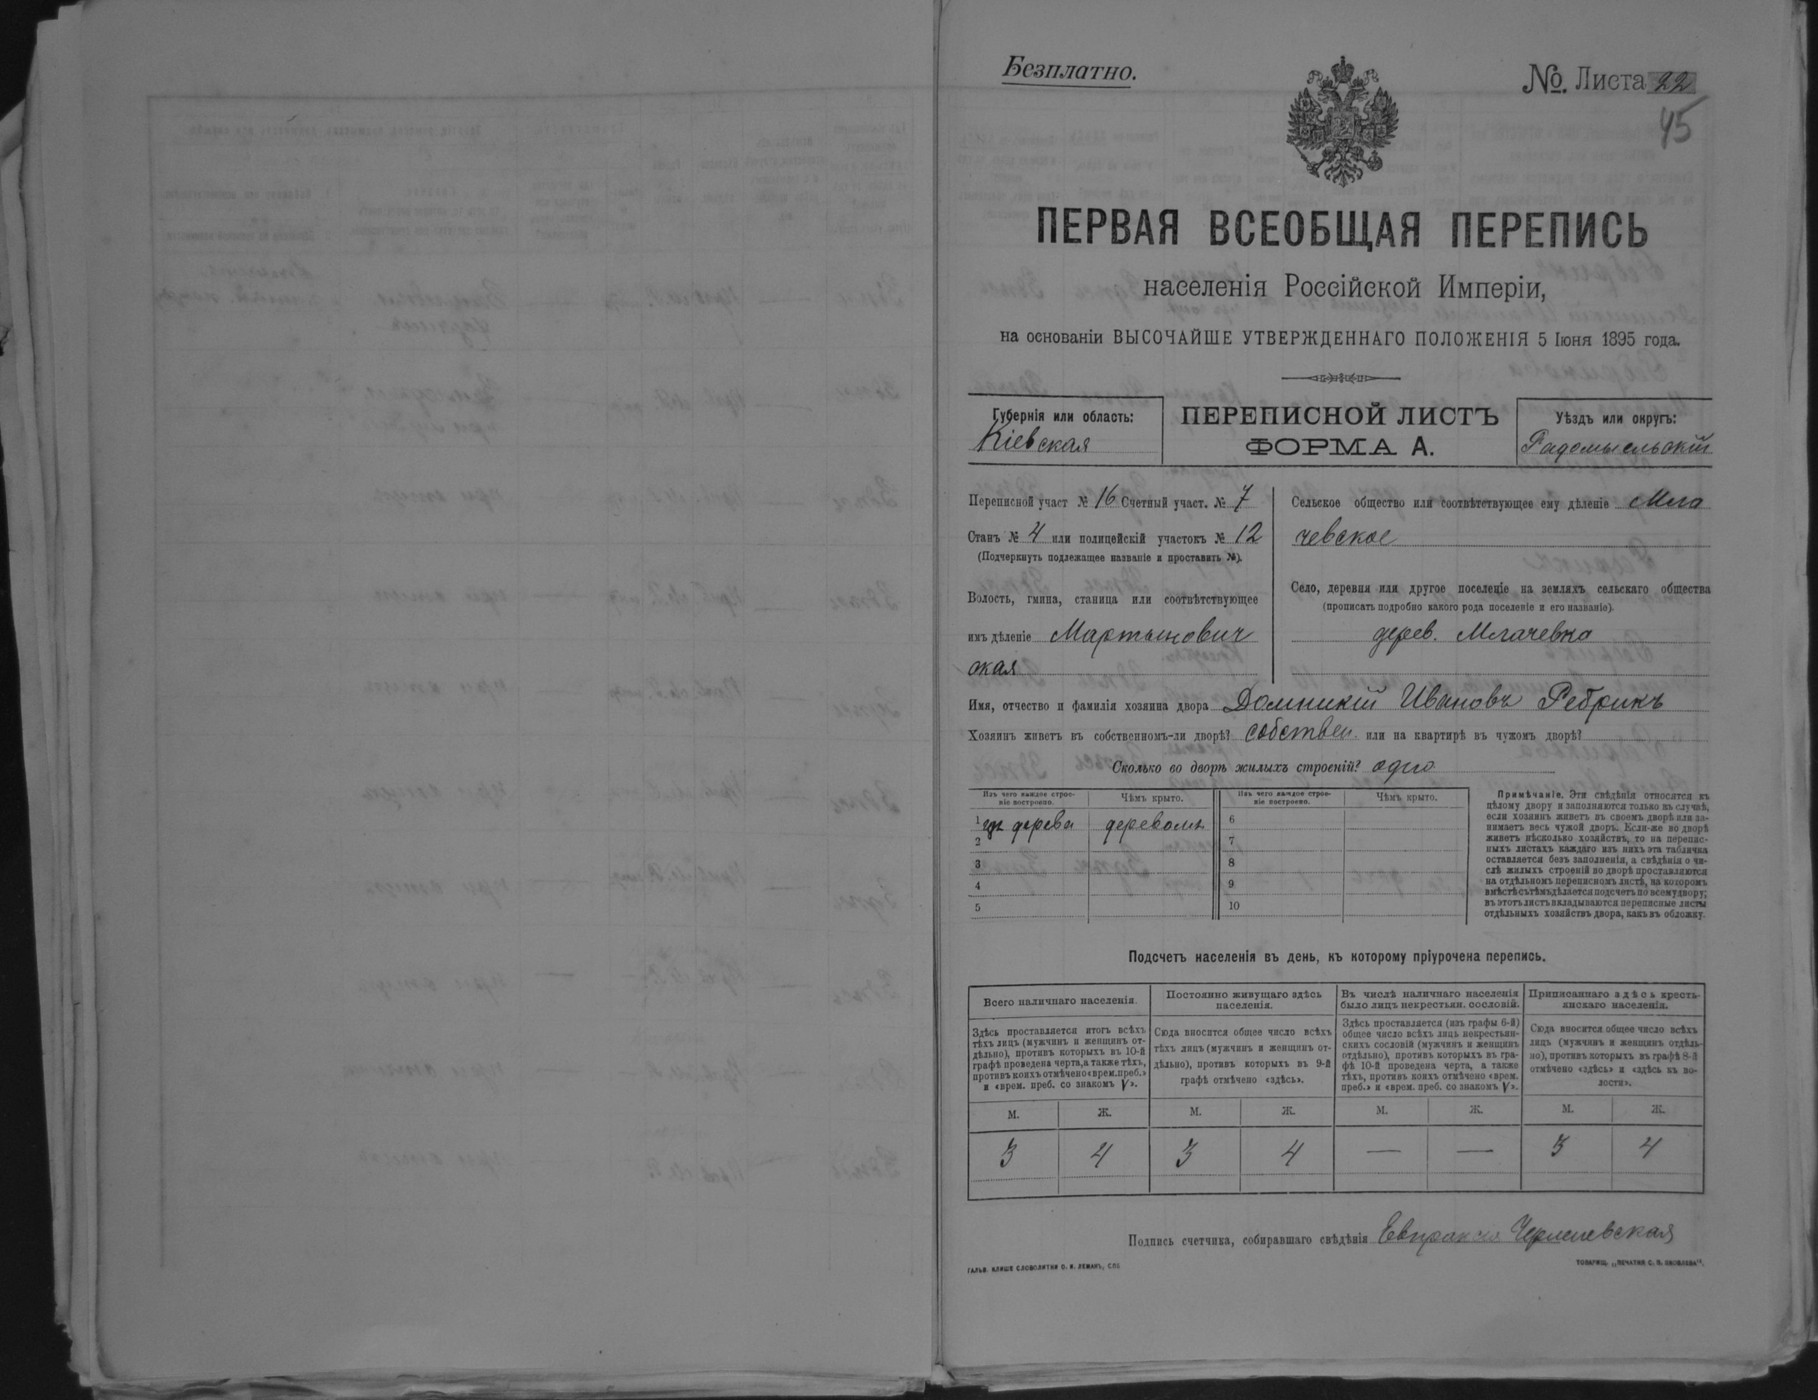 Безплатно.
№. Листа 22
45
ПЕРВАЯ ВСЕОБЩАЯ ПЕРЕПИСЬ
населенія Россійской Имперіи,
на основаніи ВЫСОЧАЙШЕ УТВЕРЖДЕННАГО ПОЛОЖЕНІЯ 5 Іюня 1895 года.
Губернія или область:
Кіевская
ПЕРЕПИСНОЙ ЛИСТЪ
ФОРМА А.
Уѣздъ или округъ:
Радомысльскій
Переписной участ № 16 Счетный участ. № 7
Станъ № 4 или полицейскій участокъ № 12
(Подчеркнуть подлежащее названіе и проставить №).
Волость, гмина, станица или соотвѣтствующее
имъ дѣленіе Мартынович
ская
Сельское общество или соотвѣтствующее ему дѣленіе Мла
чевское
Село, деревня или другое поселеніе на земляхъ сельскаго общества
(прописать подробно какого рода поселеніе и его названіе).
дерев. Млачевка
Имя, отчество и фамилія хозяина двора Доминикій Ивановъ Ребрикъ
Хозяинъ живетъ въ собственномъ-ли дворѣ? собствен. или на квартирѣ въ чужомъ дворѣ?
Сколько во дворѣ жилыхъ строеній? одно
Изъ чего каждое строе-
ніе построено.
Чѣмъ крыто.
Изъ чего каждое строе-
ніе построено.
Чѣмъ крыто.
1 изъ дерева деревомъ 6
2 7
3 8
4 9
5 10
Примѣчаніе. Эти свѣдѣнія относятся къ
цѣлому двору и заполняются только въ случаѣ,
если хозяинъ живетъ въ своемъ дворѣ или за-
нимаетъ весь чужой дворъ. Если-же во дворѣ
живетъ нѣсколько хозяйствъ, то на перепис-
ныхъ листахъ каждаго изъ нихъ эта табличка
оставляется безъ заполненія, а свѣдѣнія о чи-
слѣ жилыхъ строеній во дворѣ проставляются
на отдѣльномъ переписномъ листѣ, на которомъ
вмѣстѣ съ тѣмъ дѣлается подсчетъ по всему двору;
въ этотъ листъ вкладываются переписные листы
отдѣльныхъ хозяйствъ двора, какъ въ обложку.
Подсчетъ населенія въ день, къ которому пріурочена перепись.
Всего наличнаго населенія.
Здѣсь проставляется итогъ всѣхъ
тѣхъ лицъ (мужчинъ и женщинъ от-
дѣльно), противъ которыхъ въ 10-й
графѣ проведена черта, а также тѣхъ,
противъ коихъ отмѣчено «врем. преб.»
и «врем. преб. со знакомъ V».
Постоянно живущаго здѣсь
населенія.
Сюда вносится общее число всѣхъ
тѣхъ лицъ (мужчинъ и женщинъ от-
дѣльно), противъ которыхъ въ 9-й
графѣ отмѣчено «здѣсь».
Въ числѣ наличнаго населенія
было лицъ некрестьян. сословій.
Здѣсь проставляется (изъ графы 6-й)
общее число всѣхъ лицъ некрестьян-
скихъ сословій (мужчинъ и женщинъ
отдѣльно), противъ которыхъ въ гра-
фѣ 10-й проведена черта, а также
тѣхъ, противъ коихъ отмѣчено «врем.
преб.» и «врем. преб. со знакомъ V».
Приписаннаго здѣсь кресть-
янскаго населенія.
Сюда вносится общее число всѣхъ
лицъ (мужчинъ и женщинъ отдѣль-
но), противъ которыхъ въ графѣ 8-й
отмѣчено «здѣсь» и «здѣсь въ во-
лости».
М. Ж. М. Ж. М. Ж. М. Ж.
3 4 3 4 — — 3 4
Подпись счетчика, собиравшаго свѣдѣнія Евпраксія
ГАЛЬВ. КЛИШЕ СЛОВОЛИТНИ О. И. ЛЕМАНЪ, СПБ
ТОВАРИЩ. „ПЕЧАТНЯ С. П. ЯКОВЛЕВА".